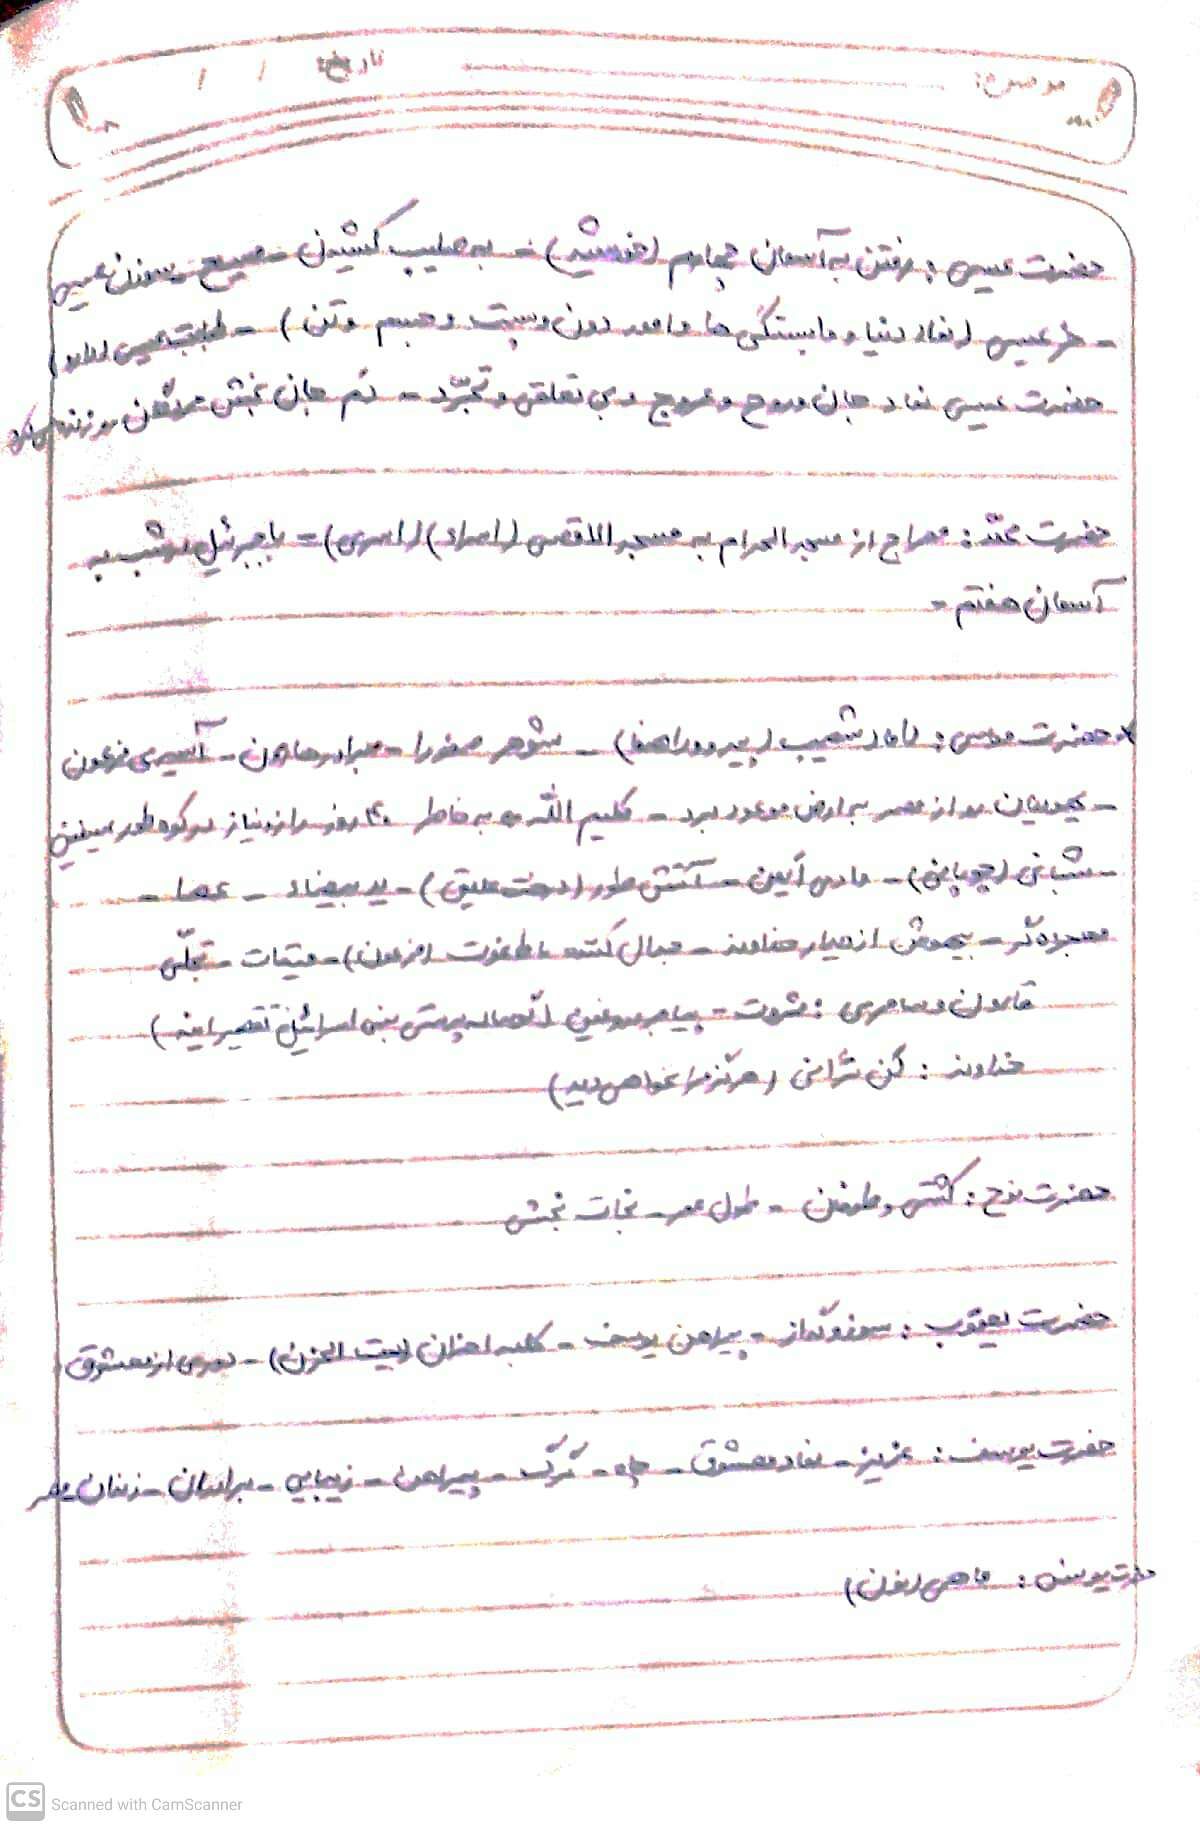 موضوع: تاریخ: / /
حضرت عیسی: رفتن به آسمان چهارم (خورشید) - به صلیب کشیدن - مسیح - سوزن عیسی
- خر عیسی (نماد دنیا و وابستگی ها و امور دون و پست و جسم و تن) - طبابت عیسی
حضرت عیسی نماد جان و روح و عروج و بی تعلقی و تجرّد - دَم جان بخش مردگان رو زنده می کرد
حضرت محمّد: معراج از مسجدالحرام به مسجدالاقصی (اسراء) (اسری) - با جبرئیل در شب به
آسمان هفتم -
* حضرت موسی: داماد شعیب (پیرو راهنما) - شوهر صفورا - برادر هارون - آسیه ی فرعون
- یهودیان رو از مصر به ارض موعود برد - کلیم الله به خاطر ۴۰ روز راز و نیاز در کوه طور سینین
- شبانی (چوپانی) - وادی اَیمن - آتش طور (درخت علیق) - ید بیضاء - عصا -
معجزه گر - بیهوش از دیدار خداوند - جدال کننده با طاغوت (فرعون) - میقات - تجلّی
قارون و سامری: ثروت - پیامبر دروغین (گوساله پرستی بنی اسرائیل تقصیر اینه)
خداوند: لَن تَرانی (هرگز مرا نخواهی دید)
حضرت نوح: کشتی و طوفان - طول عمر - نجات بخش
حضرت یعقوب: سوز و گداز - پیراهن یوسف - کلبه احزان (بیت الحزن) - دوری از معشوق
حضرت یوسف: عزیز - نماد معشوق - چاه - گرگ - پیراهن - زیبایی - برادران - زندان مصر
حضرت یونس: ماهی (نون)
CS Scanned with CamScanner